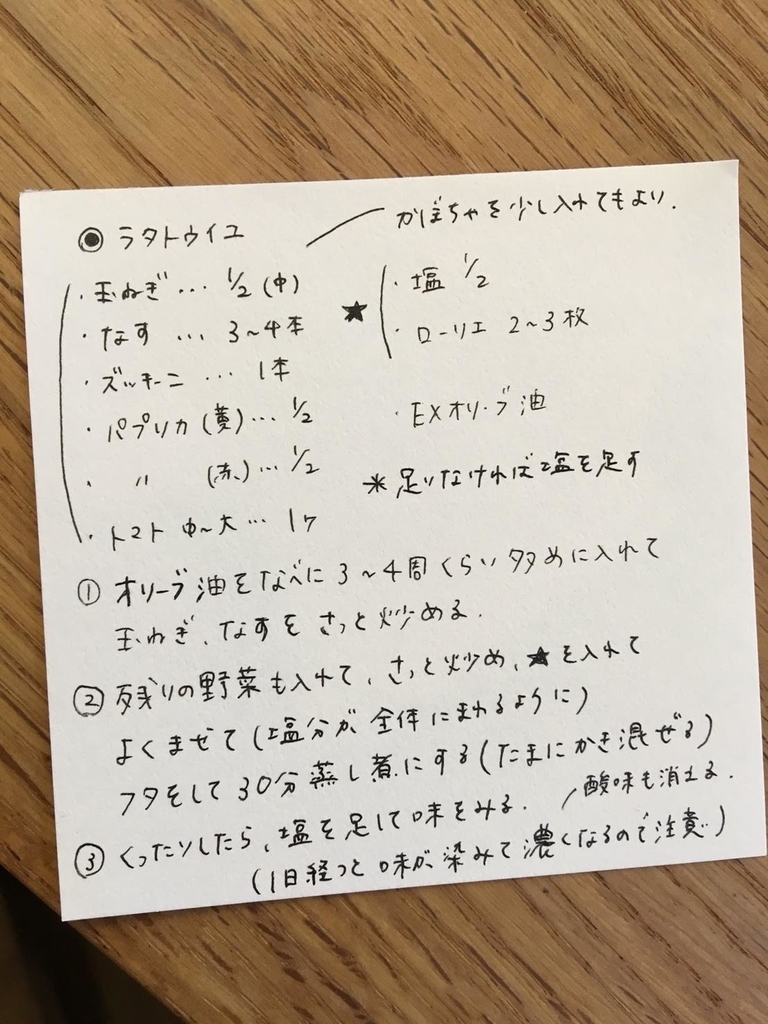 ◉ ラタトウイユ
かぼちゃを少し入れてもよい.
・玉ねぎ … 1/2 (中)
・なす … 3~4本
・ズッキーニ … 1本
・パプリカ (黄) … 1/2
・ 〃 (赤) … 1/2
・トマト 中~大 … 1ヶ
★
・塩 1/2
・ローリエ 2~3枚
・EXオリーブ油
*足りなければ塩を足す
① オリーブ油をなべに3~4周くらい多めに入れて
玉ねぎ、なすをさっと炒める.
② 残りの野菜も入れて、さっと炒め、★を入れて
よくまぜて(塩分が全体にまわるように)
フタをして30分蒸し煮にする(たまにかき混ぜる)
酸味も消える.
③ くったりしたら、塩を足して味をみる.
(1日経つと味が染みて濃くなるので注意)